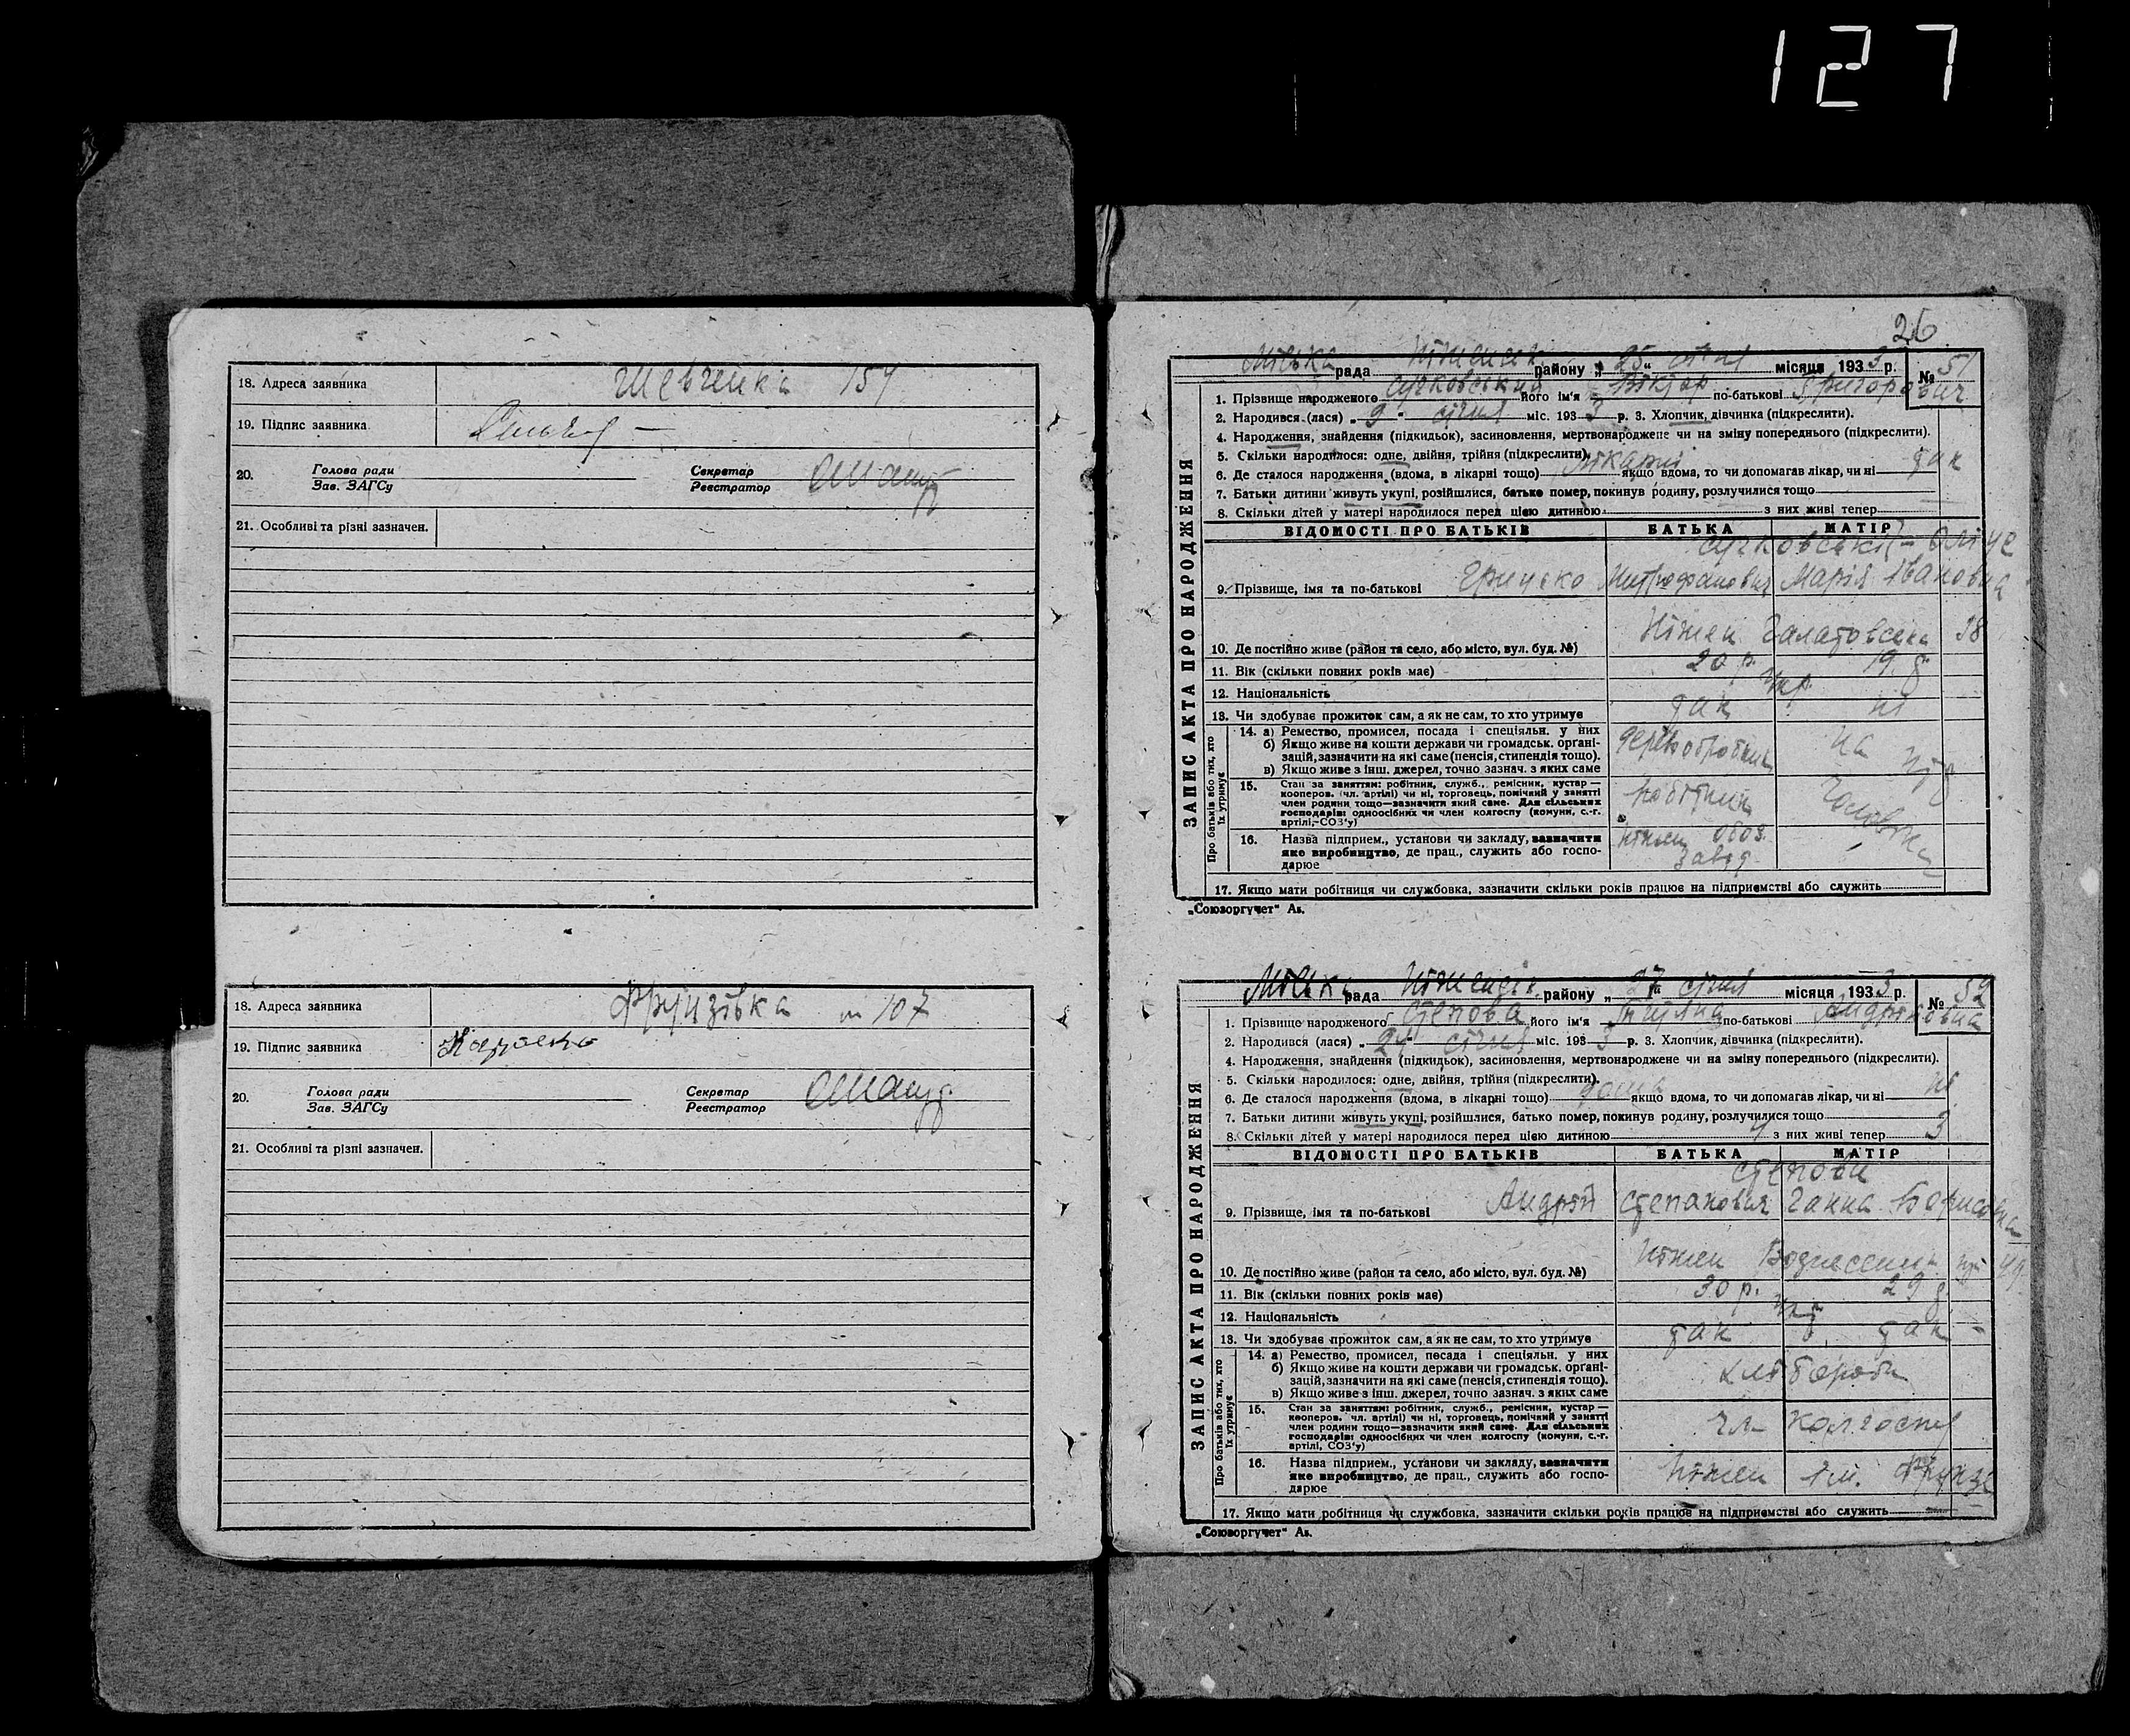 127
18. Адреса заявника Шевченка 154
19. Підпис заявника
20. Голова ради
Зав. ЗАГСу
Секретар
Реєстратор
21. Особливі та різні зазначен.
18. Адреса заявника Фрунзівка 107
19. Підпис заявника
20. Голова ради
Зав. ЗАГСу
Секретар
Реєстратор
21. Особливі та різні зазначен.
26
ЗАПИС АКТА ПРО НАРОДЖЕННЯ
Міська рада Ніженськ району „ 25 “ січня місяця 1933 р. № 51
1. Прізвище народженого Сучковський його ім'я Віктор по-батькові Григорович
2. Народився (лася) „ 9 “ січня міс. 1933 р. 3. Хлопчик, дівчинка (підкреслити).
4. Народження, знайдення (підкидьок), засиновлення, мертвонароджене чи на зміну попереднього (підкреслити).
5. Скільки народилося: одне, двійня, трійня (підкреслити).
6. Де сталося народження (вдома, в лікарні тощо) лікарні якщо вдома, то чи допомагав лікар, чи ні так
7. Батьки дитини живуть укупі, розійшлися, батько помер, покинув родину, розлучилися тощо
8. Скільки дітей у матері народилося перед цією дитиною з них живі тепер
ВІДОМОСТІ ПРО БАТЬКІВ БАТЬКА МАТІР
Сучковські
9. Прізвище, імя та по-батькові Грицько Митрофанович Марія Івановна
10. Де постійно живе (район та село, або місто, вул. буд. №) Ніжен Галатовська 38
11. Вік (скільки повних років має) 20 р. 19 р.
12. Національність Укр.
13. Чи здобуває прожиток сам, а як не сам, то хто утримує так ні
Про батьків або тих, хто їх утримує
14. а) Ремество, промисел, посада і спеціяльн. у них
б) Якщо живе на кошти держави чи громадськ. організацій, зазначити на які саме (пенсія, стипендія тощо).
в) Якщо живе з інш. джерел, точно зазнач. з яких саме
деревообробник на утр
15. Стан за заняттям: робітник, служб., ремісник, кустар —
кооперов. (чл. артілі) чи ні, торговець, помічний у занятті
член родини тощо—зазначити який саме. Для сільських
господарів: одноосібних чи член колгоспу (комуни, с.-г.
артілі,-СОЗ'у)
робітник чоловіка
16. Назва підприєм., установи чи закладу, зазначити
яке виробництво, де прац., служить або господарює
Ніжен обоз. завод
17. Якщо мати робітниця чи службовка, зазначити скільки років працює на підприємстві або служить
„Союзоргучет“ Ак.
ЗАПИС АКТА ПРО НАРОДЖЕННЯ
Міська рада Ніженськ. району „ 27 “ січня місяця 1933 р. № 52
1. Прізвище народженого Степова його ім'я Тетяна по-батькові Андріковна
2. Народився (лася) „ 24 “ січня міс. 1933 р. 3. Хлопчик, дівчинка (підкреслити).
4. Народження, знайдення (підкидьок), засиновлення, мертвонароджене чи на зміну попереднього (підкреслити).
5. Скільки народилося: одне, двійня, трійня (підкреслити).
6. Де сталося народження (вдома, в лікарні тощо) дома якщо вдома, то чи допомагав лікар, чи ні ні
7. Батьки дитини живуть укупі, розійшлися, батько помер, покинув родину, розлучилися тощо
8. Скільки дітей у матері народилося перед цією дитиною 4 з них живі тепер 3
ВІДОМОСТІ ПРО БАТЬКІВ БАТЬКА МАТІР
Степови
9. Прізвище, імя та по-батькові Андрій Степанович Ганна Борисовна
10. Де постійно живе (район та село, або місто, вул. буд. №) Ніжен Воднесенн.
11. Вік (скільки повних років має) 30 р. 29 р.
12. Національність Укр
13. Чи здобуває прожиток сам, а як не сам, то хто утримує так так
Про батьків або тих, хто їх утримує
14. а) Ремество, промисел, посада і спеціяльн. у них
б) Якщо живе на кошти держави чи громадськ. організацій, зазначити на які саме (пенсія, стипендія тощо).
в) Якщо живе з інш. джерел, точно зазнач. з яких саме
хлібороби
15. Стан за заняттям: робітник, служб., ремісник, кустар —
кооперов. чл. артілі) чи ні, торговець, помічний у занятті
член родини тощо—зазначити який саме. Для сільських
господарів: одноосібних чи член колгоспу (комуни, с.-г.
артілі, СОЗ'у)
чл- колгоспу
16. Назва підприєм., установи чи закладу, зазначити
яке виробництво, де прац., служить або господарює
Ніжен ім. Фрунзе
17. Якщо мати робітниця чи службовка, зазначити скільки років працює на підприємстві або служить
„Союзоргучет“ Ак.